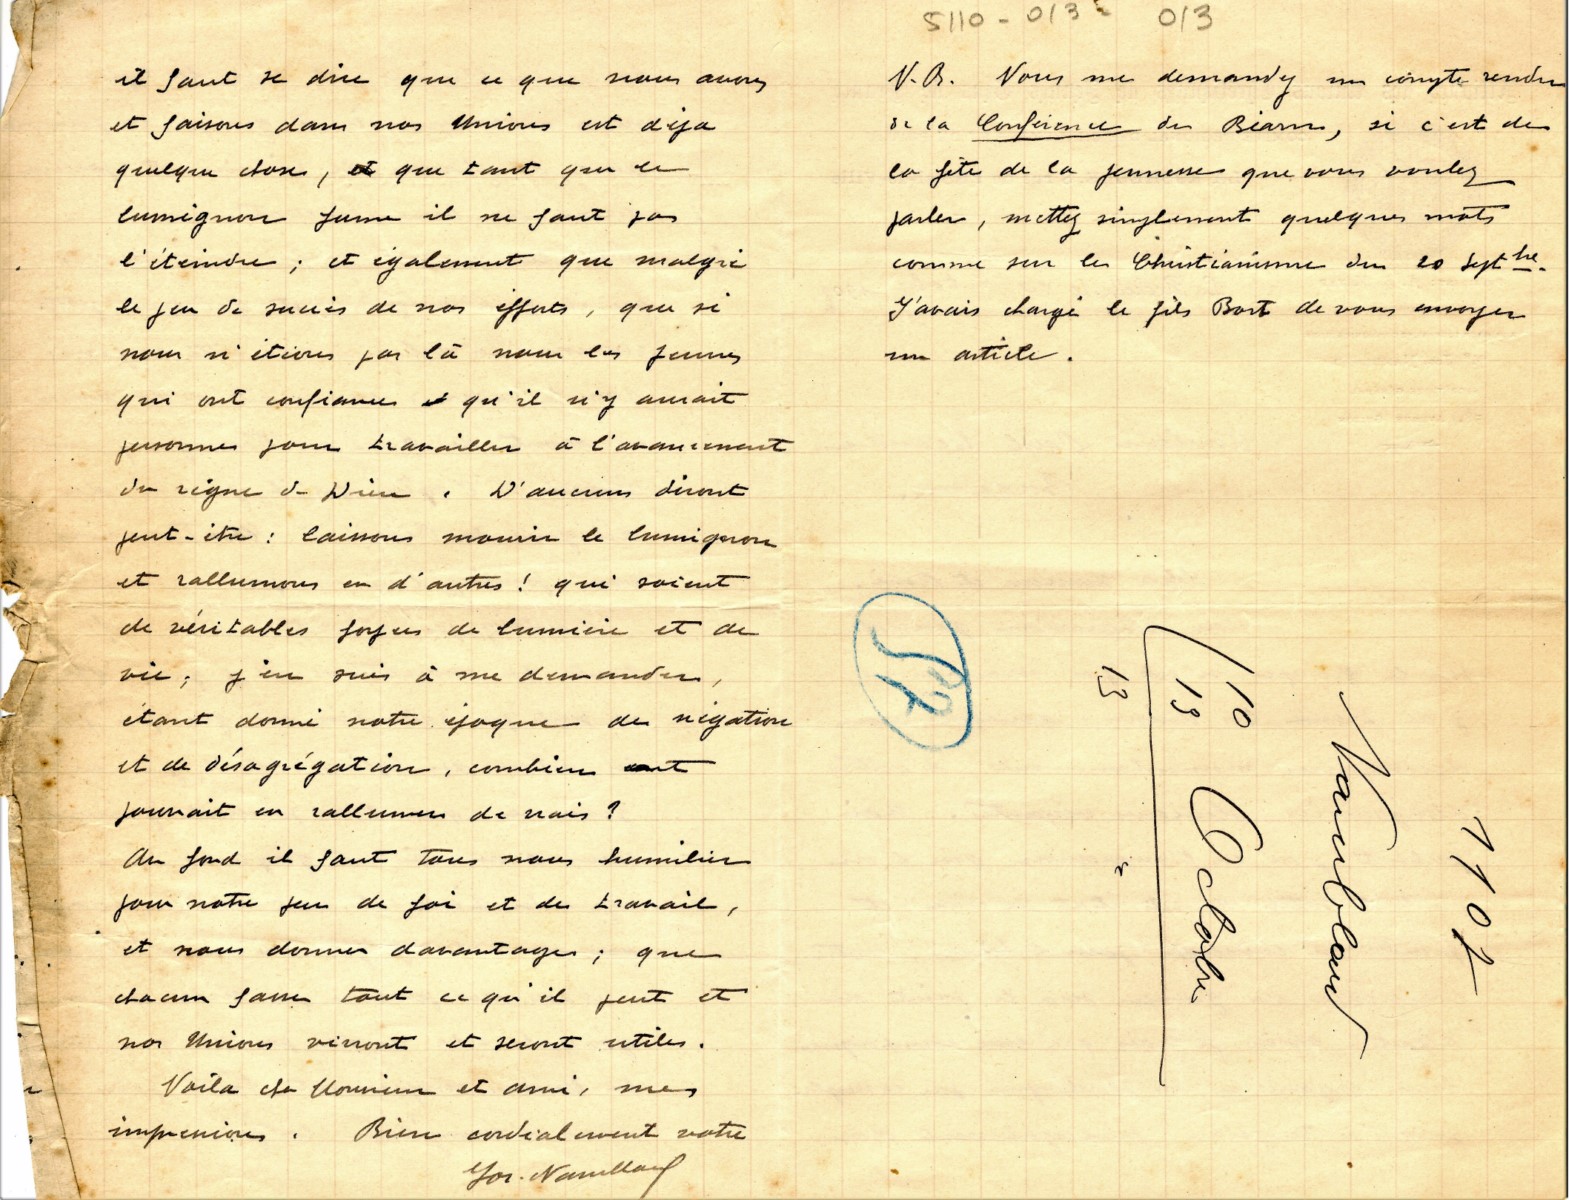 5110-013- 013
il faut se dire que ce que nous avons
et faisons dans nos Unions est déja
quelque chose, et que tant que le
lumignon fume il ne faut pas
l'éteindre ; et également que malgré
le peu de succès de nos éfforts, que si
nous n'étions pas là nous les jeunes
qui ont confiance qu'il n'y aurait
personne pour travailler à l'avancement
du règne de Dieu. D'aucuns diront
peut-être : laissons mourir le lumignon
et rallumons en d'autres ! qui soient
de véritables foyers de lumière et de
vie ; j'en suis à me demander,
étant donné notre époque de négation
et de désagrégation, combien
pourrait en rallumer de vrais ?
Au fond il faut tous nous humilier
pour notre peu de foi et de travail,
et nous donner davantage ; que
chacun fasse tout ce qu'il peut et
nos Unions vivront et seront utiles.
Voila cher Monsieur et ami, mes
impressions. Bien cordialement votre
N.B. Vous me demandez un compte rendu
de la Conférence du Béarn, si c'est de
la fête de la jeunesse que vous voulez
parler, mettez simplement quelques mots
comme sur le Christianisme du 20 Septbre.
J'avais chargé le fils Bost de vous envoyer
un article.
1907
10
13 Octobre
13